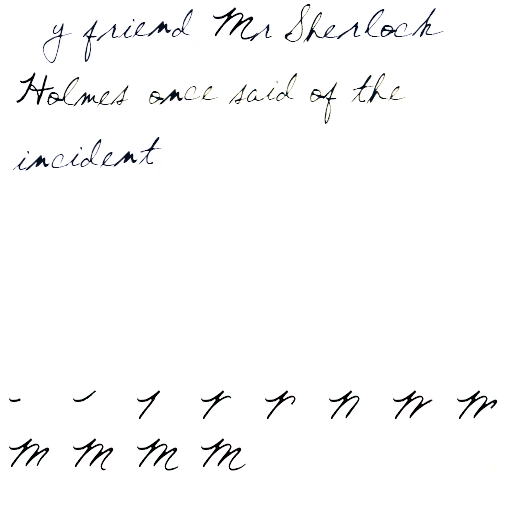 y friend Mr Sherlock
Holmes once said of the
incident
M M M M